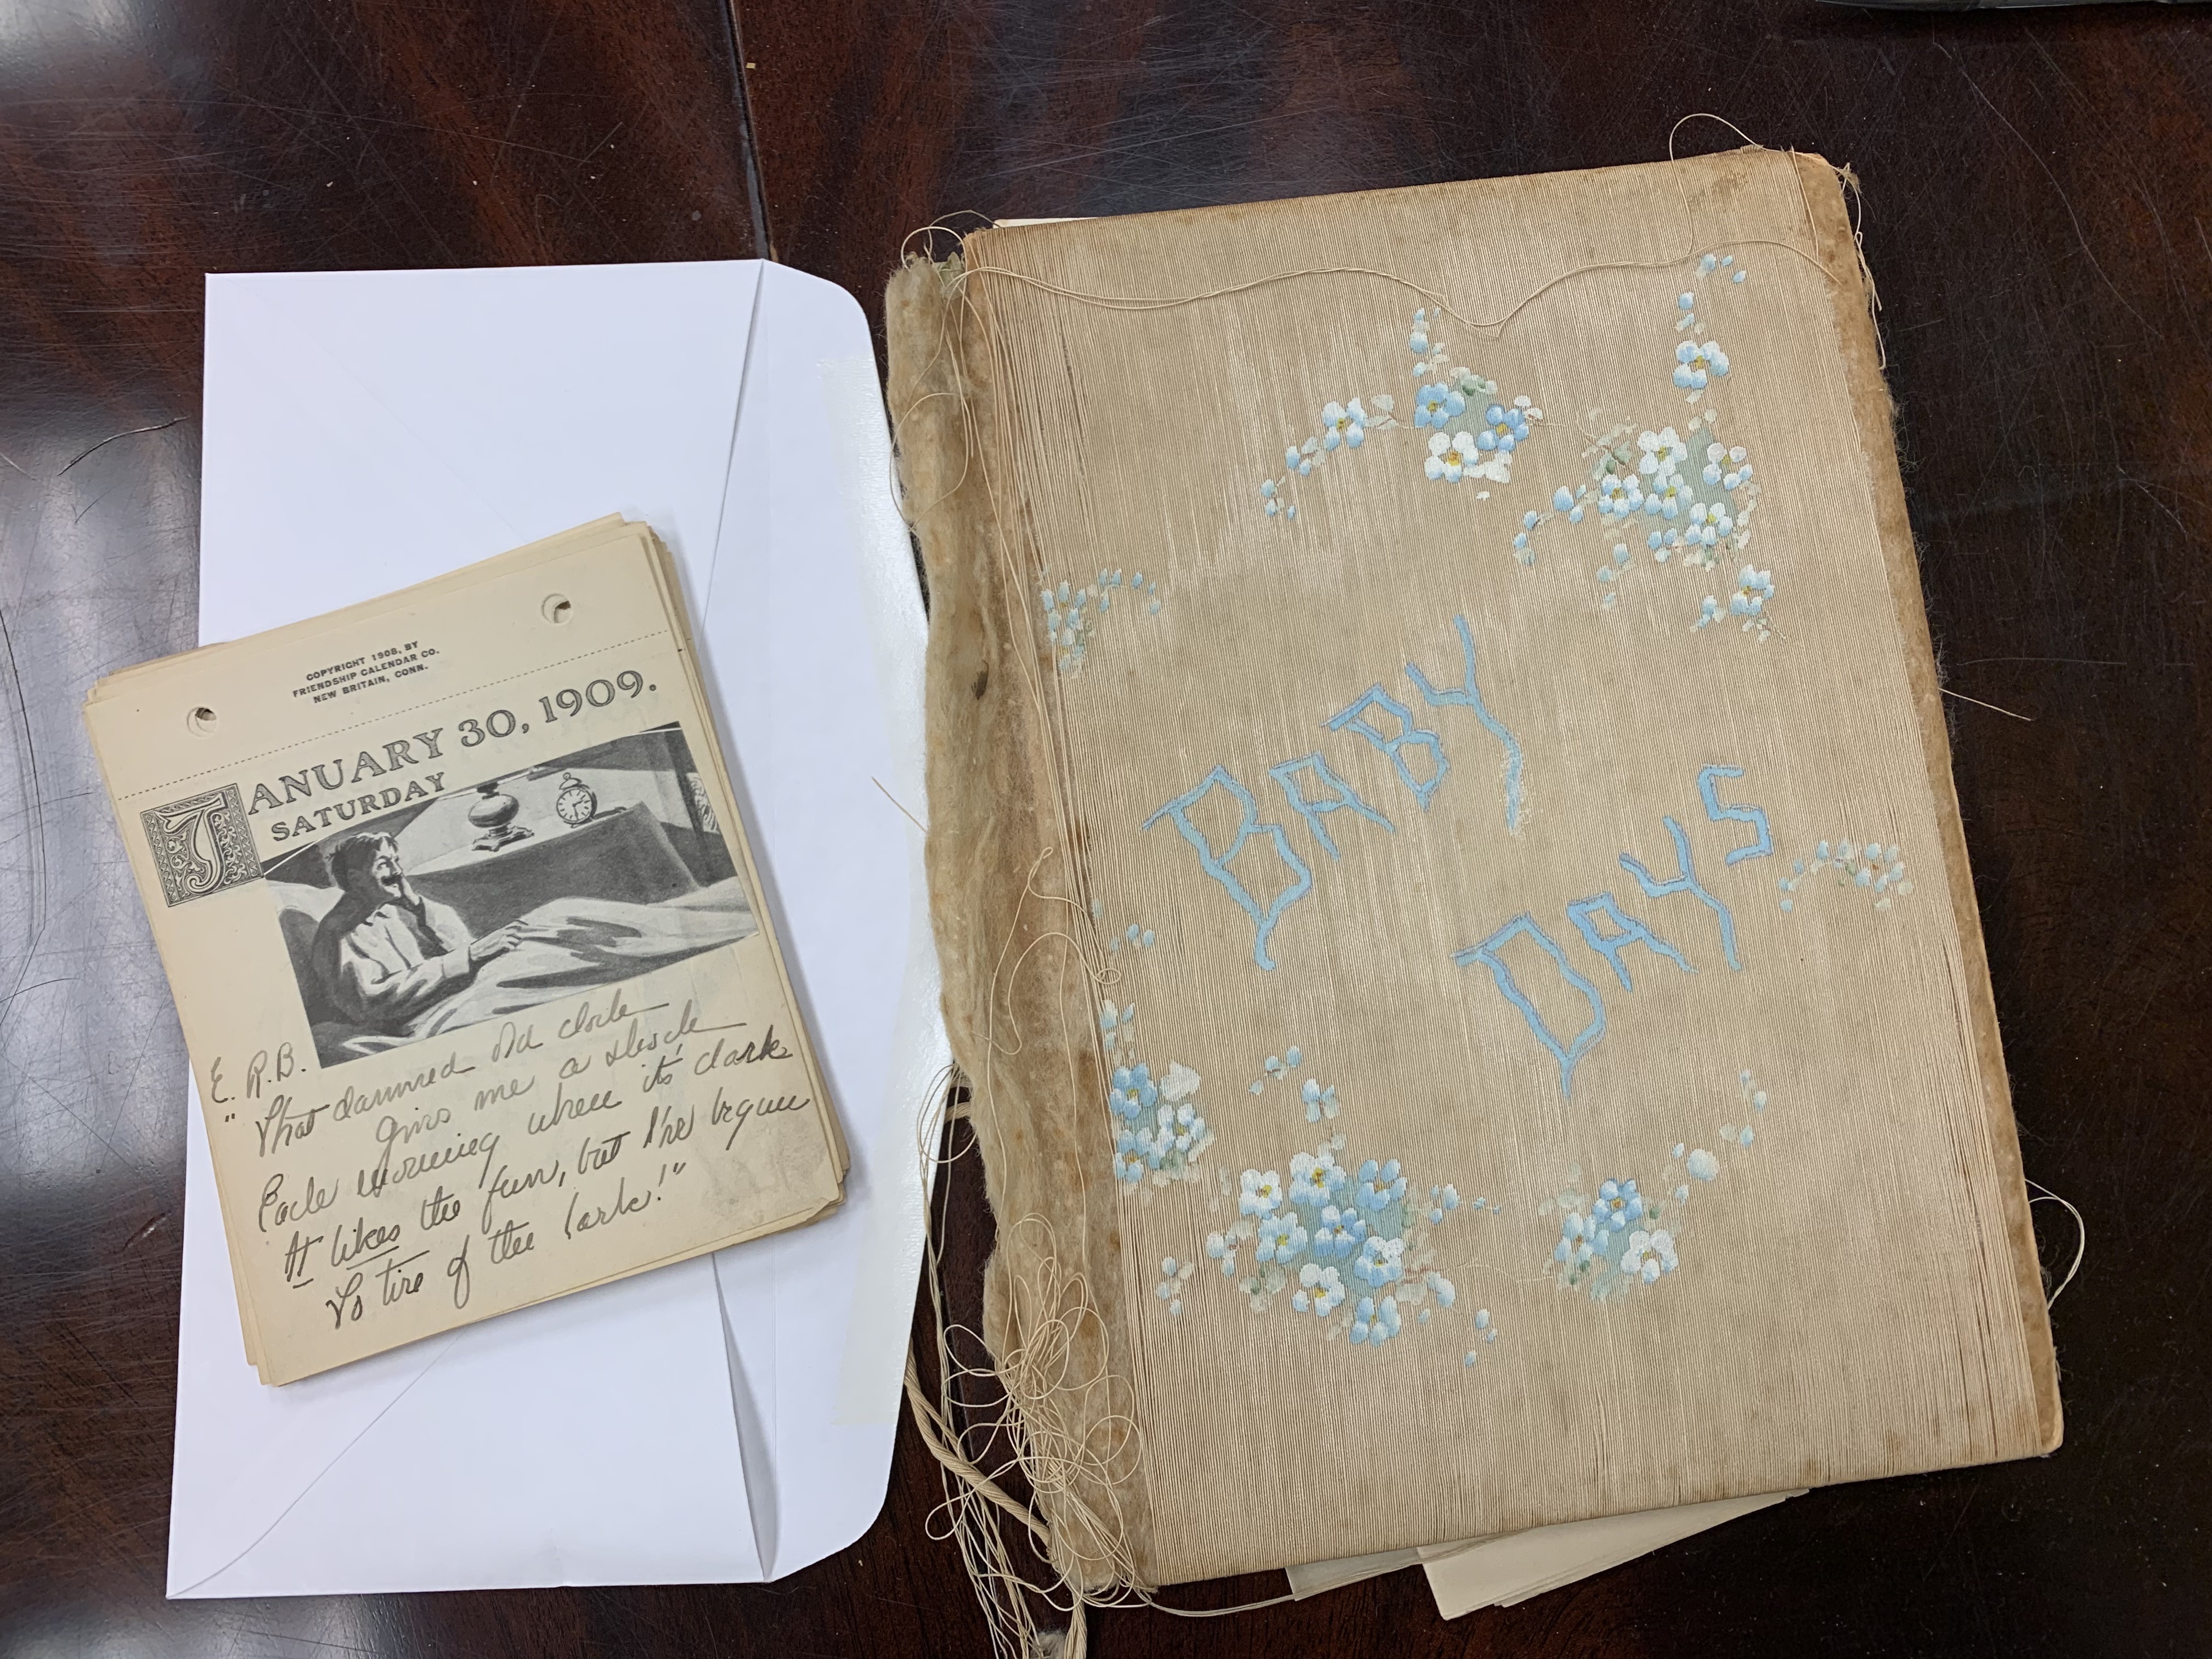 COPYRIGHT 1908, BY
FRIENDSHIP CALENDAR CO.
NEW BRITAIN, CONN.
JANUARY 30, 1909.
SATURDAY
E. R.B.
"That damned old clock
Gives me a shock
Each morning when it's dark
It likes the fun, but I've begun
To tire of the lark!"
BABY
DAYS